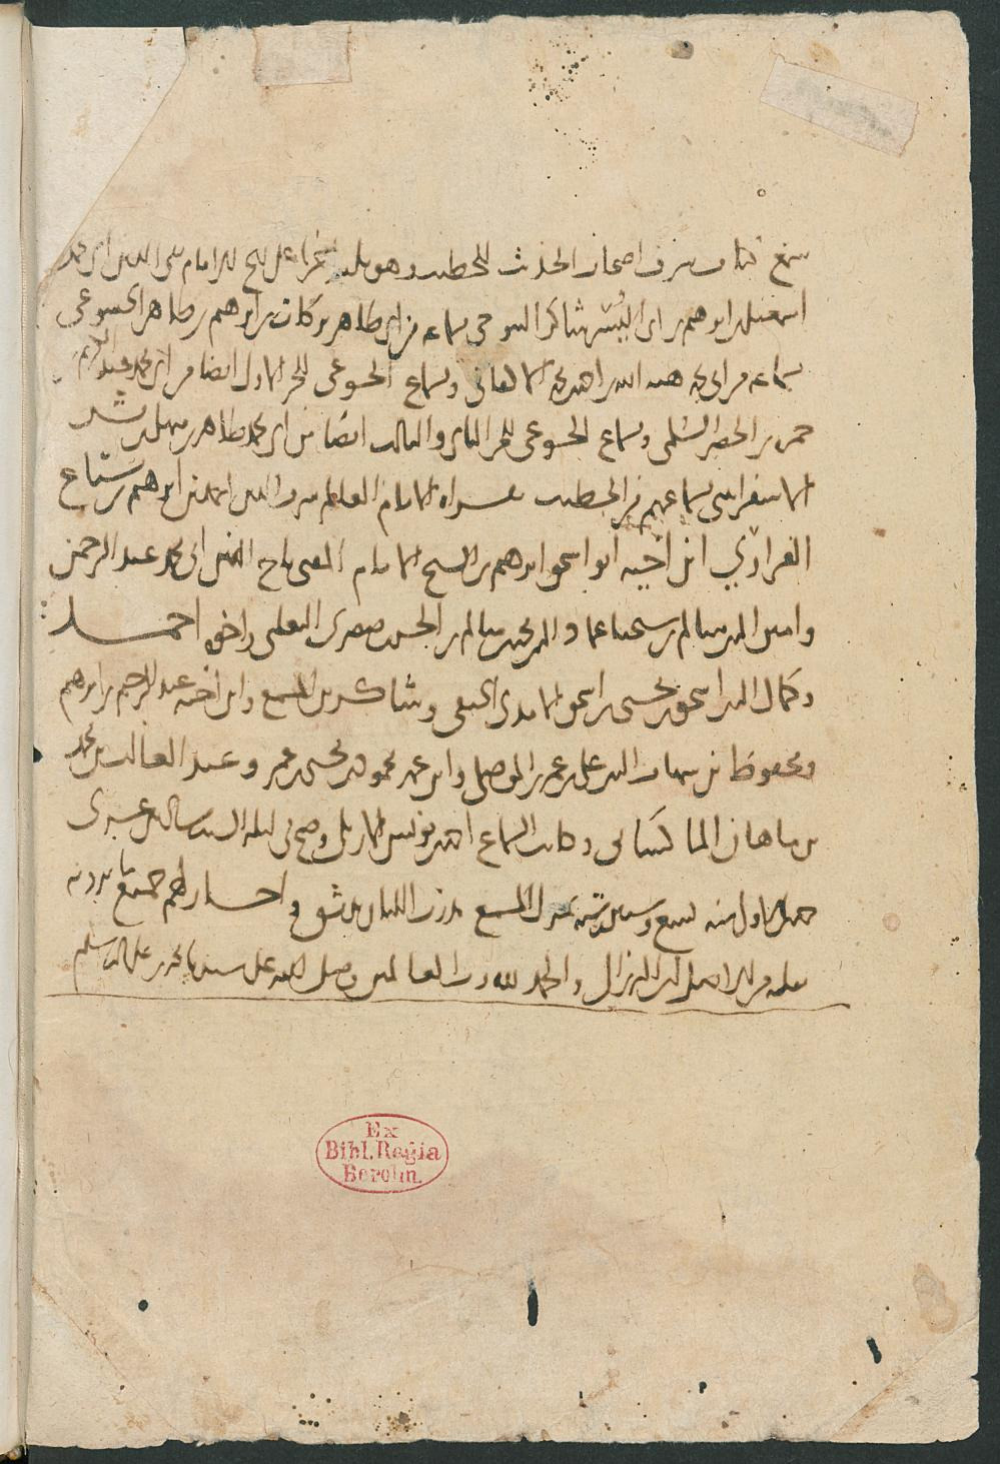 سمع كتاب شرف اصحاب الحديث للخطيب وهو ثلثه اجزا على الشيخ الامام تقي الدين ابي محمد
اسمعيل بن ابرهيم بن ابي اليسر شاكر التنوخي بسماعه من ابي طاهر بركات بن ابرهيم بن طاهر الخشوعي
بسماعه من ابي محمد هبه الله بن احمد بن محمد الاكفاني وبسماع الخشوعي للجز الاول ايضا من ابي محمد عبد الكريم
حمزه بن الخضر السلمي وبسماع الخشوعي للجز الثاني والثالث ايضا من ابي محمد طاهر بن سهل بن بشر
الاسفرايني بسماعهم من الخطيب بقراه الامام العالم شرف الدين احمد بن ابرهيم بن سباع
الفزاري ابن اخيه ابو اسحق ابرهيم بن الشيخ الامام المفتي تاج الدين ابي محمد عبد الرحمن
وامين الدين سالم بن شيخنا عماد الدين محمد بن سالم بن الحسن صصرى التغلبي واخوه احمد
وكمال الدين اسحق بن يحيى بن اسحق الامدي الحنفي وشاكر بن المسمع وابن اخيه عبد الرحيم بن ابرهيم
ومحفوظ بن شهاب الدين علي بن عمر الموصلي وابن عمه محمود بن يحيى بن عمر وعبد الغالب بن محمد
بن ماهان الماكسيني وكاتب السماع احمد بن يونس الاربلي وصح في ليله السبت ثالث عشرى
جمادى الاول سنه تسع وستين وستمايه بمنزل المسمع بدرب اللبان بدمشق واجاز لهم جميع ما يرويه
نقله من الاصل ابن البزال والحمد لله رب العالمين وصلى الله على سيدنا محمد وعلى اله وسلم
Ex
Bibl. Regia
Berolin.